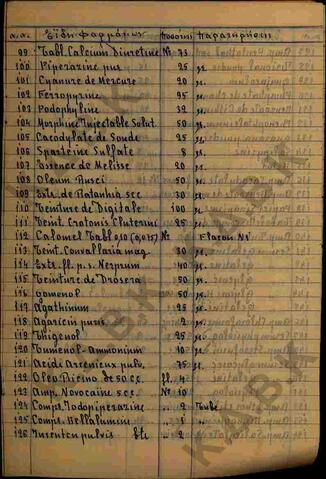 α.α. Εἴδη φαρμάκων Ποσότης Παρατηρήσεις
99 Tabl. Calcium Diuretine № 73
100 Piperazine pur 25 gr.
101 Cyanure de Mercure 20 "
102 Ferropyrine 95 gr.
103 Podophyline 32 gr.
104 Morphine Injectable Solut. 50 gr.
105 Cacodylate de Soude 25 gr.
106 Sparteine Sulfate 8 gr.
107 Essence de Melisse 20 gr.
108 Oleum Rusci 50 gr.
109 Extr. de Ratanhia sec 30 gr.
110 Teinture de Digitale 100 gr.
111 Teint. Cratonis Cluterini 25 gr.
112 Calomel Tabl. 0,10 (0,015) № 1 Flacon №1
113 Teint. Convallaria mag. 30 gr.
114 Extr. fl. p. s. 40 gr.
115 Teinture de Drosera 50 gr.
116 Gomenol 50 gr.
117 Agathinum 25 gr.
118 Agaricin puris 1 gr.
119 Thigenol 25 gr.
120 Tumenol-Ammonium 10 gr.
121 Acidi Arsenicus pulv. 75 gr.
122 Oleo Ricino de 50 cc. fl. 4
123 Amp. Novocaine 5 cc. № 10
124 Compr. Iodopiperazine " 2 Tube
125 Compr. Bellafolini " 1 "
126 pulvis btl " 2 "
Κ.Α.Β.Κ